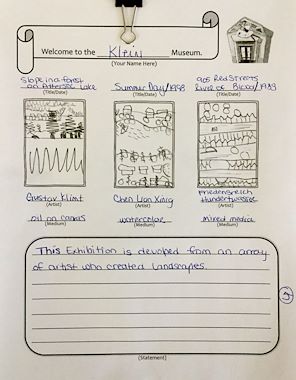 Welcome to the Klein Museum.
(Your Name Here)
Slope in a forest Summer Day/1998 905 Red Streets
on Attersee Lake River of Blood/1989
(Title/Date) (Title/Date) (Title/Date)
Gustav Klimt Chen Lian Xing Friedensreich
Hundertwasser
(Artist) (Artist) (Artist)
oil on canvas watercolor mixed media
(Medium) (Medium) (Medium)
This Exhibition is devoped from an array
of artist who created landscapes.
(Statement)